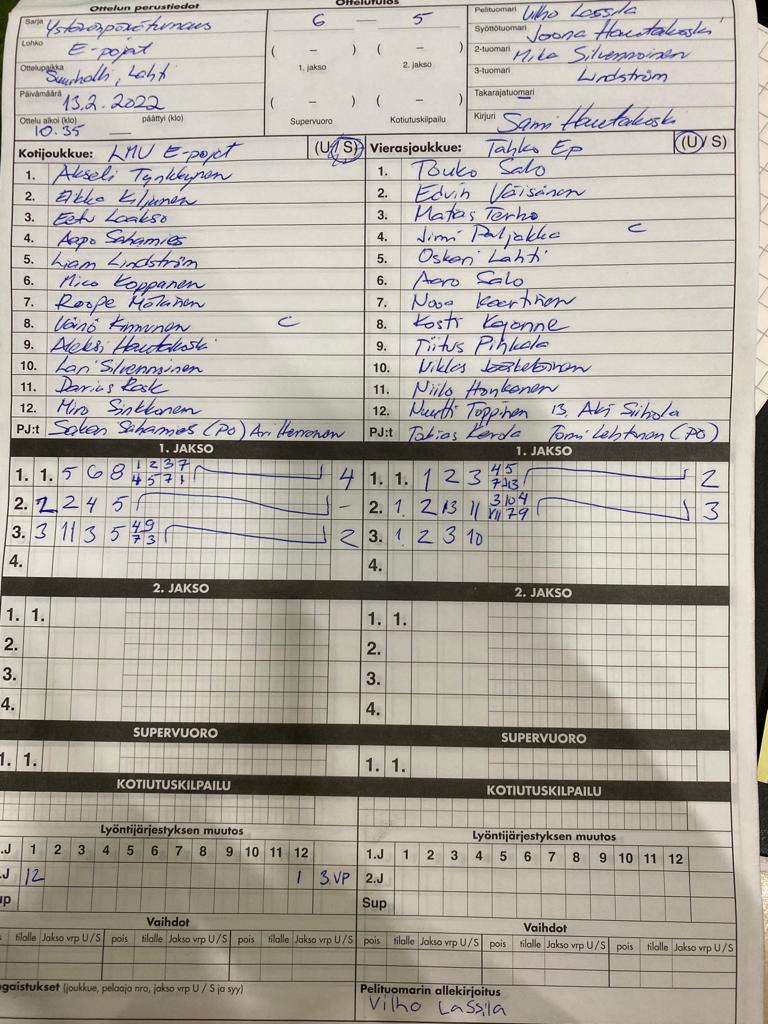 Ottelun perustiedot
Ottelutulos
Sarja Ystävänpäiväturnaus
Lohko E-pojat
Ottelupaikka Suurhalli, Lahti
Päivämäärä 13.2.2022
Ottelu alkoi (klo) päättyi (klo)
10.35
6 – 5
( – ) ( – )
1. jakso 2. jakso
( – ) ( – )
Supervuoro Kotiutuskilpailu
Pelituomari Vilho Lassila
Syöttötuomari Joona Hautakoski
2-tuomari Mika Silvennoinen
3-tuomari Lindström
Takarajatuomari
Kirjuri Sami Hautakoski
Kotijoukkue: LMV E-pojat (U/S)
1. Akseli Tynkkynen
2. Eikko Kiljunen
3. Eetu Laakso
4. Aapo Sahamies
5. Liam Lindström
6. Mico Koppanen
7. Roope Mölänen
8. Väinö Kinnunen C
9. Aleksi Hautakoski
10. Lari Silvennoinen
11. Darius Rask
12. Miro Sinkkonen
PJ:t Sahamies (PO) Ari Herronen
Vierasjoukkue: Tahko Ep (U/S)
1. Touko Salo
2. Edvin Väisänen
3. Matas Terho
4. Jimi Paljakka C
5. Oskari Lahti
6. Aaro Salo
7. Nooa Kaartinen
8. Kosti Kajonne
9. Tiitus Pihkala
10. Niklas Jääskeläinen
11. Niilo Honkanen
12. Nuutti Toppinen 13. Aki Siihola
PJ:t Tobias Tomi Lehtinen (PO)
1. JAKSO
1. 1. 5 6 8 1 2 3 7
4 5 7 1 4
2. 2 2 4 5 -
3. 3 11 3 5 4 9
7 3 2
4.
1. JAKSO
1. 1. 1 2 3 4 5
7 13 2
2. 1 2 13 11 3 10 4
7 9 3
3. 1 2 3 10
4.
2. JAKSO
1. 1.
2.
3.
4.
2. JAKSO
1. 1.
2.
3.
4.
SUPERVUORO
1. 1.
SUPERVUORO
1. 1.
KOTIUTUSKILPAILU
KOTIUTUSKILPAILU
Lyöntijärjestyksen muutos
.J 1 2 3 4 5 6 7 8 9 10 11 12
.J 12 1 3.VP
up
Lyöntijärjestyksen muutos
1.J 1 2 3 4 5 6 7 8 9 10 11 12
2.J
Sup
Vaihdot
s tilalle Jakso vrp U/S pois tilalle Jakso vrp U/S pois tilalle Jakso vrp U/S
Vaihdot
pois tilalle Jakso vrp U/S pois tilalle Jakso vrp U/S pois tilalle Jakso vrp U/S
ngaistukset (joukkue, pelaaja nro, jakso vrp U / S ja syy)
Pelituomarin allekirjoitus
Vilho Lassila